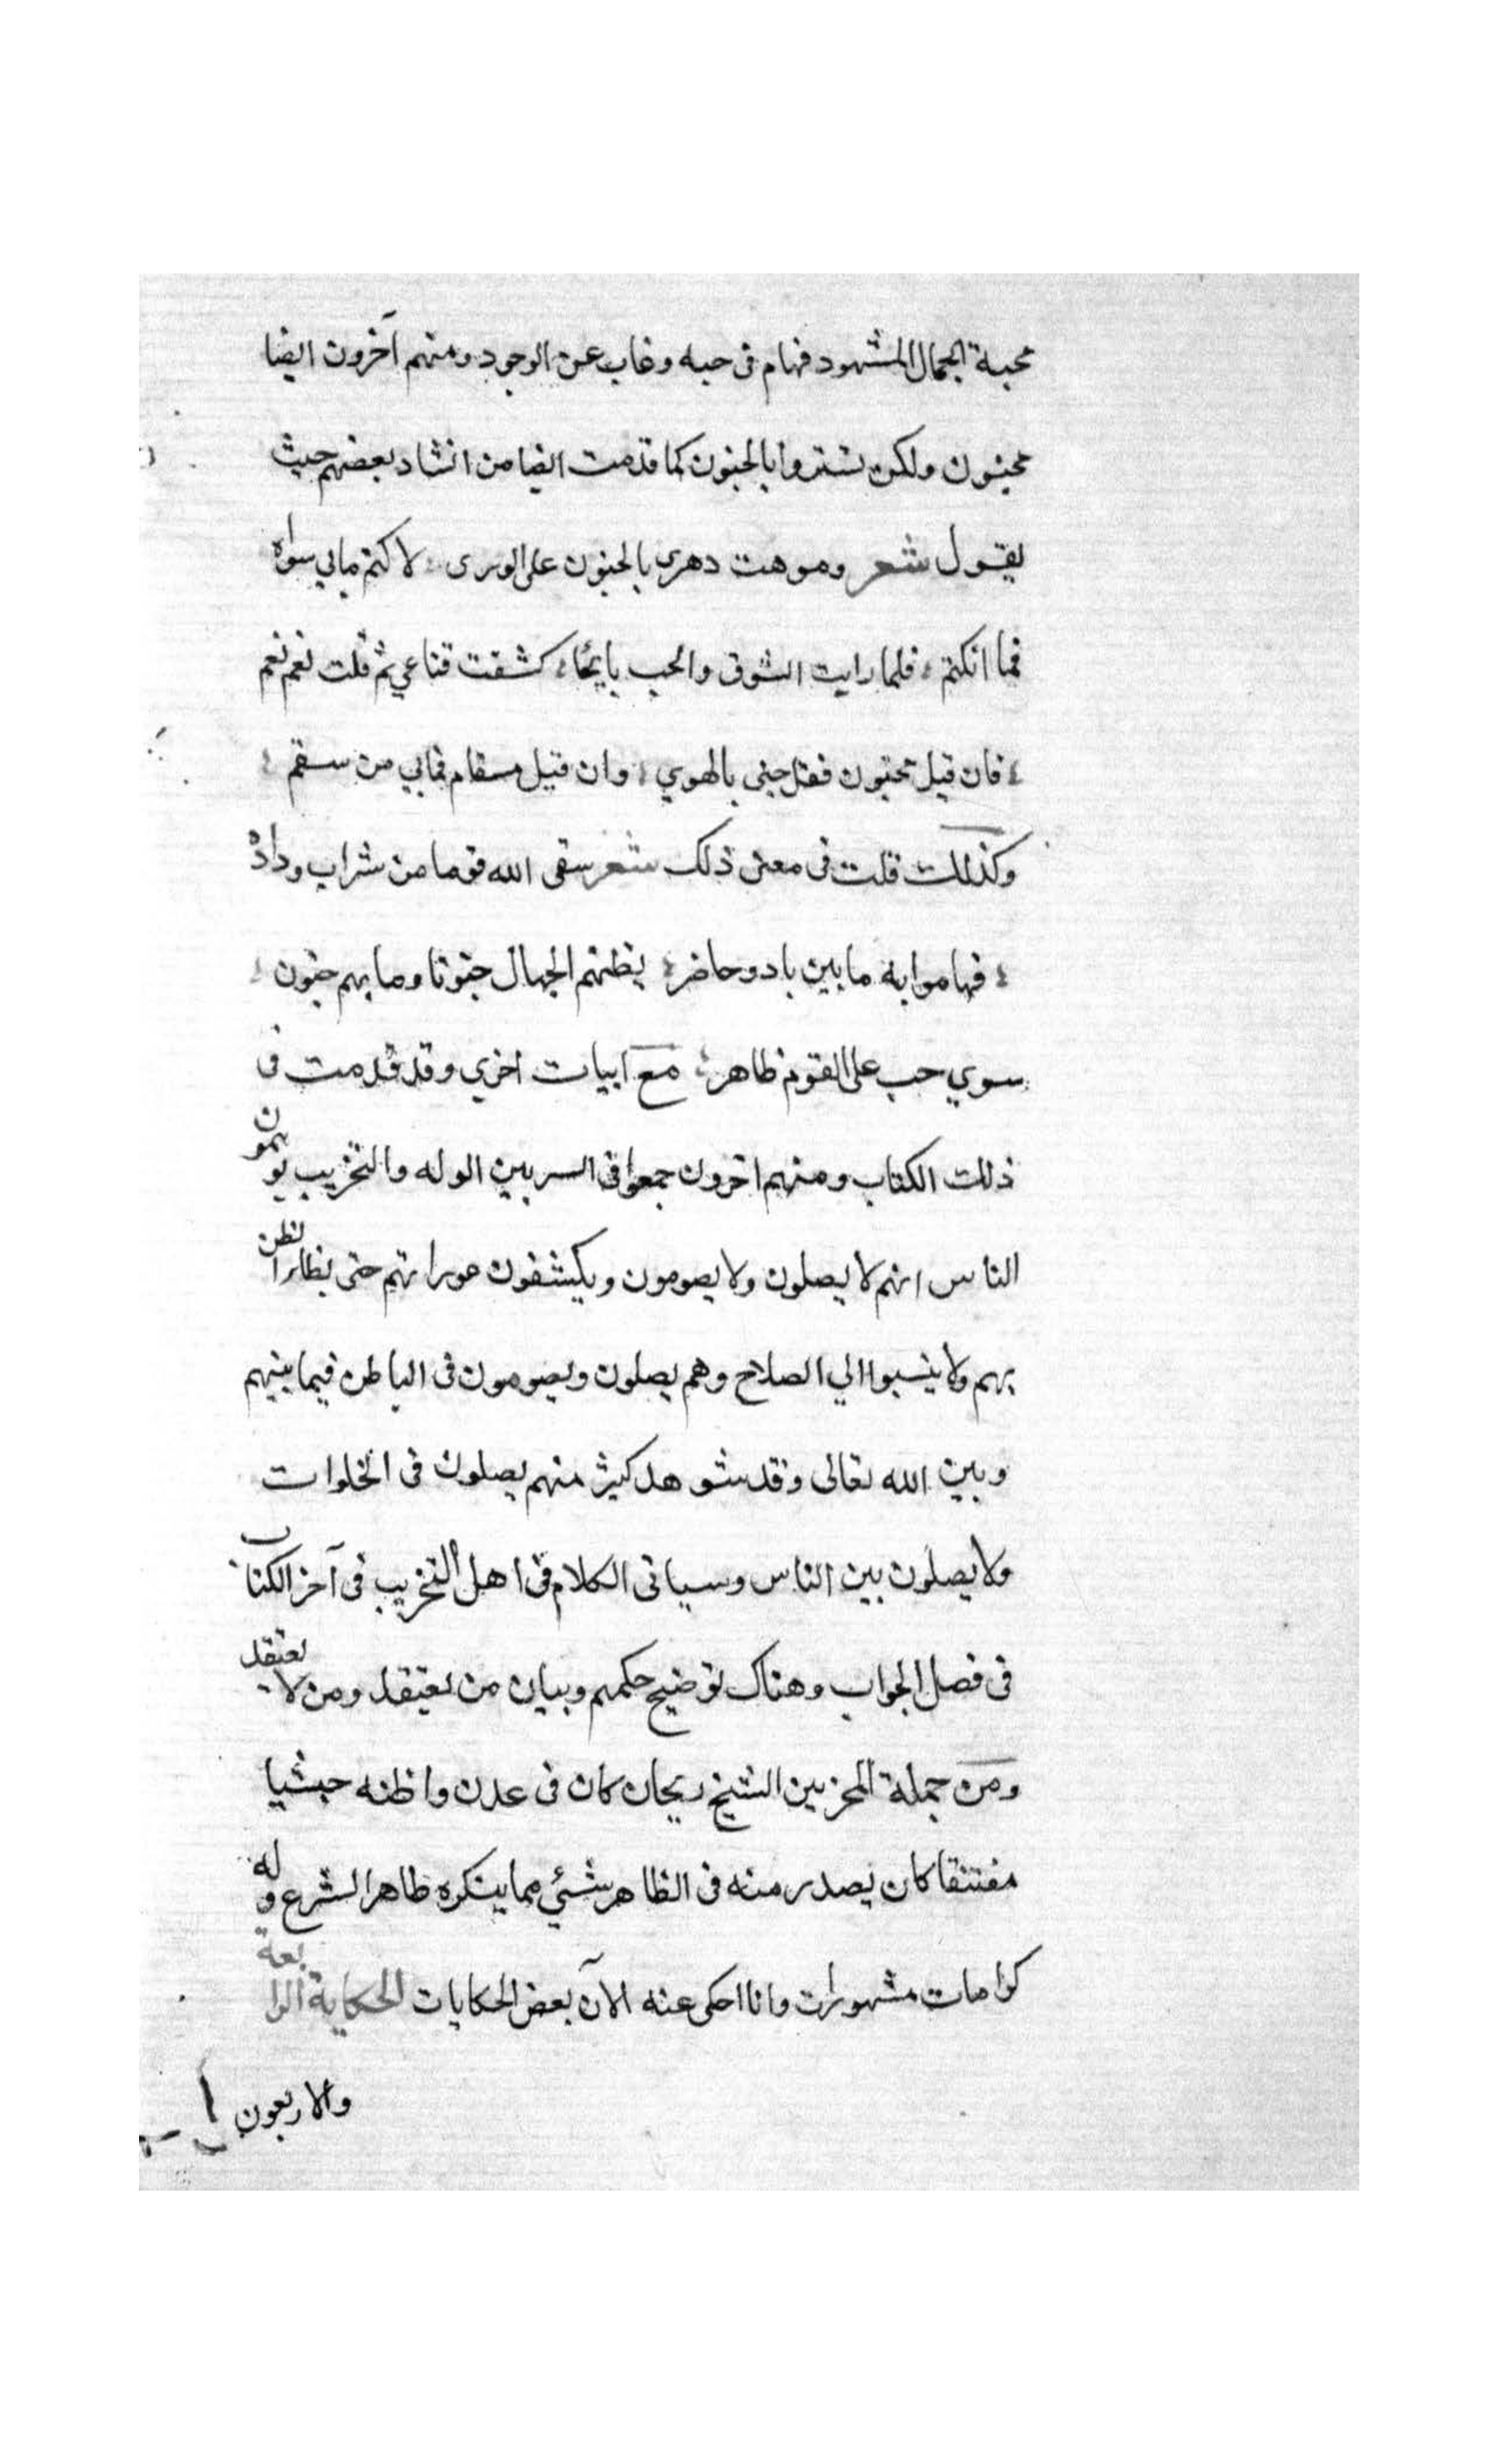 محبة الجمال المشهود فهام فى حبه وغاب عن الوجود ومنهم آخرون ايضا
مجنون ولكن تستروا بالجنون كما قدمت ايضا من انشاد بعضهم حيث
يقول شعر وموهت دهرى بالجنون على الورى لاكتم مابي سواه
فما انكتم فلما رايت الشوق والحب بايحًا كشفت قناعي ثم قلت نعم نعم
فان قيل مجنون فقل جنى بالهوي وان قيل مسقام فمابي من سقم
وكذلك قلت فى معنى ذلك شعر سقى الله قوما من شراب وداد
فهاموا به ما بين باد وحاضر يظنهم الجهال جنونا وما بهم جنون
سوي حب على القوم ظاهر مع ابيات اخري وقد قدمت فى
ذلك الكتاب ومنهم اخرون جمعوا فى السر بين الوله والتخريب يوهمون
الناس انهم لا يصلون ولا يصومون ويكشفون عوراتهم حتى يظاء الظن
بهم ولا ينسبوا الي الصلاح وهم يصلون ويصومون فى الباطن فيما بينهم
وبين الله تعالى وقد شوهد كثير منهم يصلون فى الخلوات
ولا يصلون بين الناس وسياتى الكلام فى اهل التخريب فى آخر الكتاب
فى فصل الجواب وهناك توضيح حكمهم وبيان من يعتقد ومن لا يعتقد
ومن جملة المخربين الشيخ ريحان كان فى عدن واظنه حبشيا
مفتتقا كان يصدر منه فى الظاهر شئي مما ينكره ظاهر الشرع وله
كرامات مشهورات وانا احكى عنه الآن بعض الحكايات الحكاية الرابعة
والاربعون